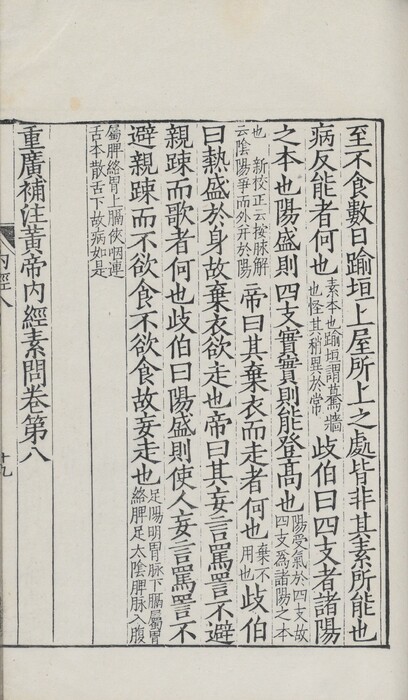 至不食數日踰垣上屋所上之處皆非其素所能也
病反能者何也素本也踰垣謂驀墻也怪其稍異於常歧伯曰四支者諸陽
之本也陽盛則四支實實則能登高也陽受氣於四支故四支爲諸陽之本
也 新校正云按脉解云陰陽爭而外并於陽帝曰其棄衣而走者何也棄不用也歧伯
曰熱盛於身故棄衣欲走也帝曰其妄言罵詈不避
親踈而歌者何也歧伯曰陽盛則使人妄言罵詈不
避親踈而不欲食不欲食故妄走也足陽明胃脉下膈屬胃絡脾足太陰脾脉入腹
屬脾絡胃上膈俠咽連舌本散舌下故病如是
重廣補注黃帝內經素問卷第八
內經八
十九